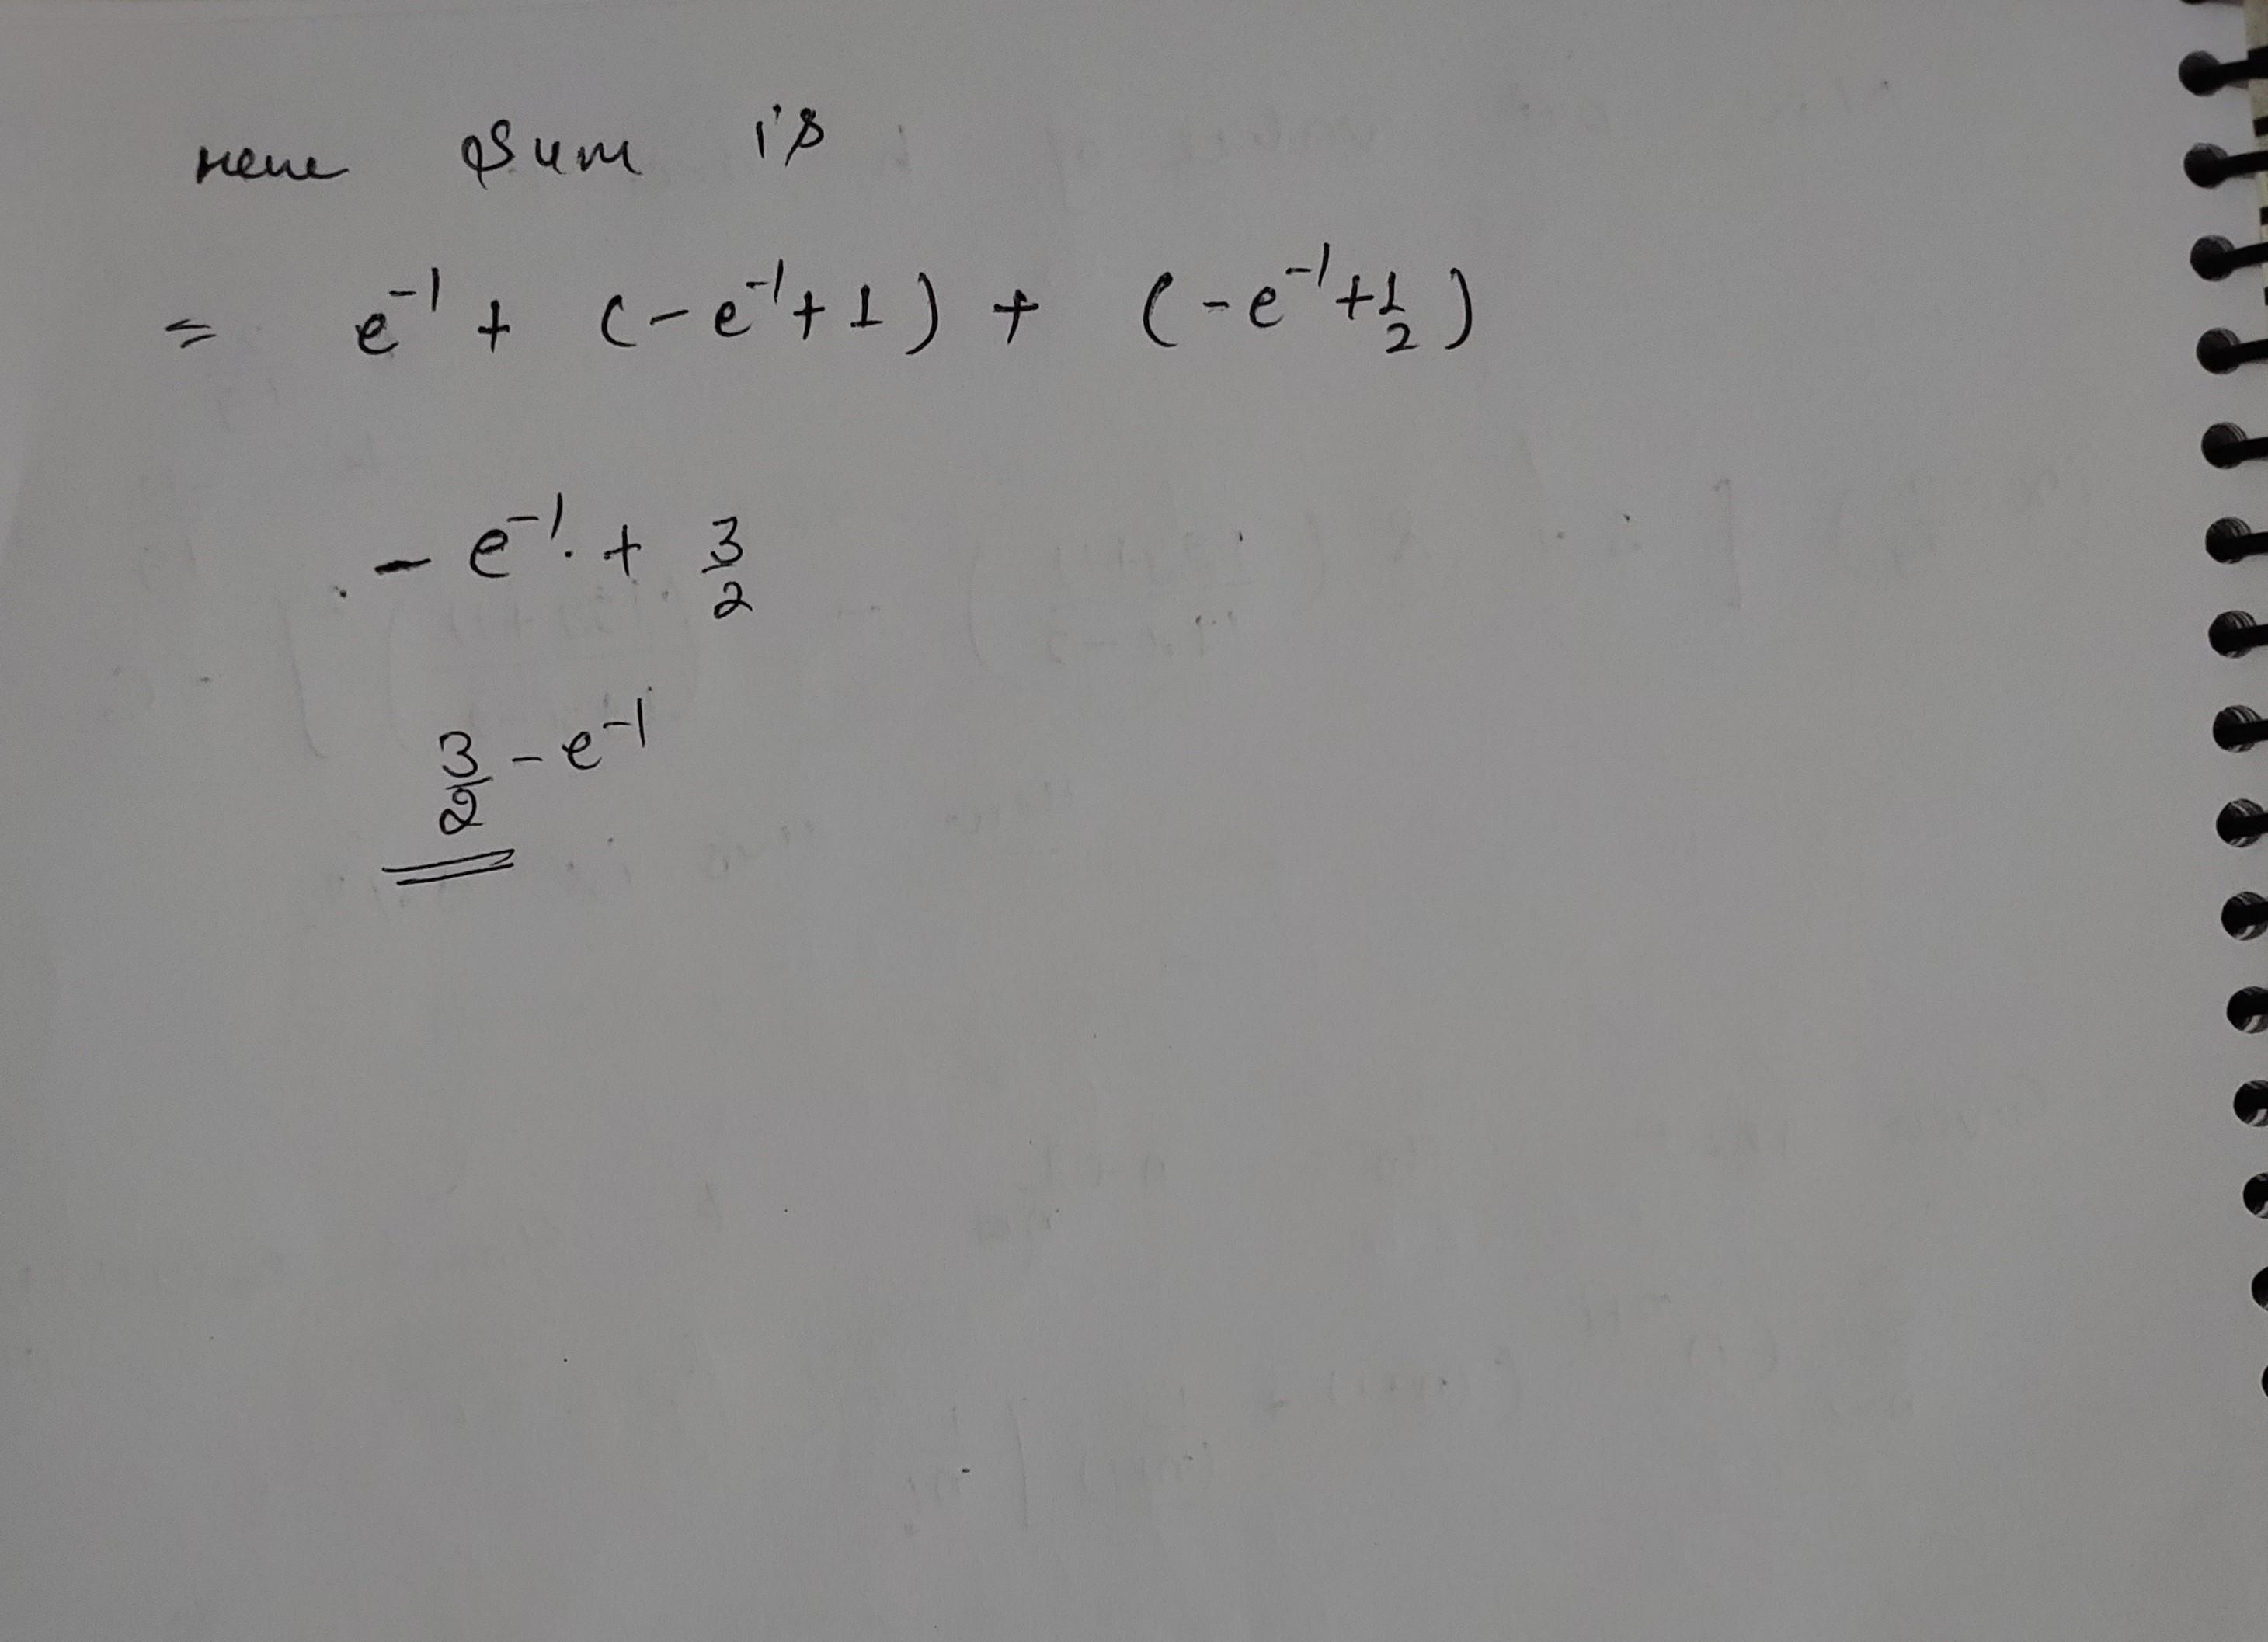 Here Sum is
= e⁻¹ + (-e⁻¹+1) + (-e⁻¹+1/2)
- e⁻¹. + 3/2
3/2 - e⁻¹